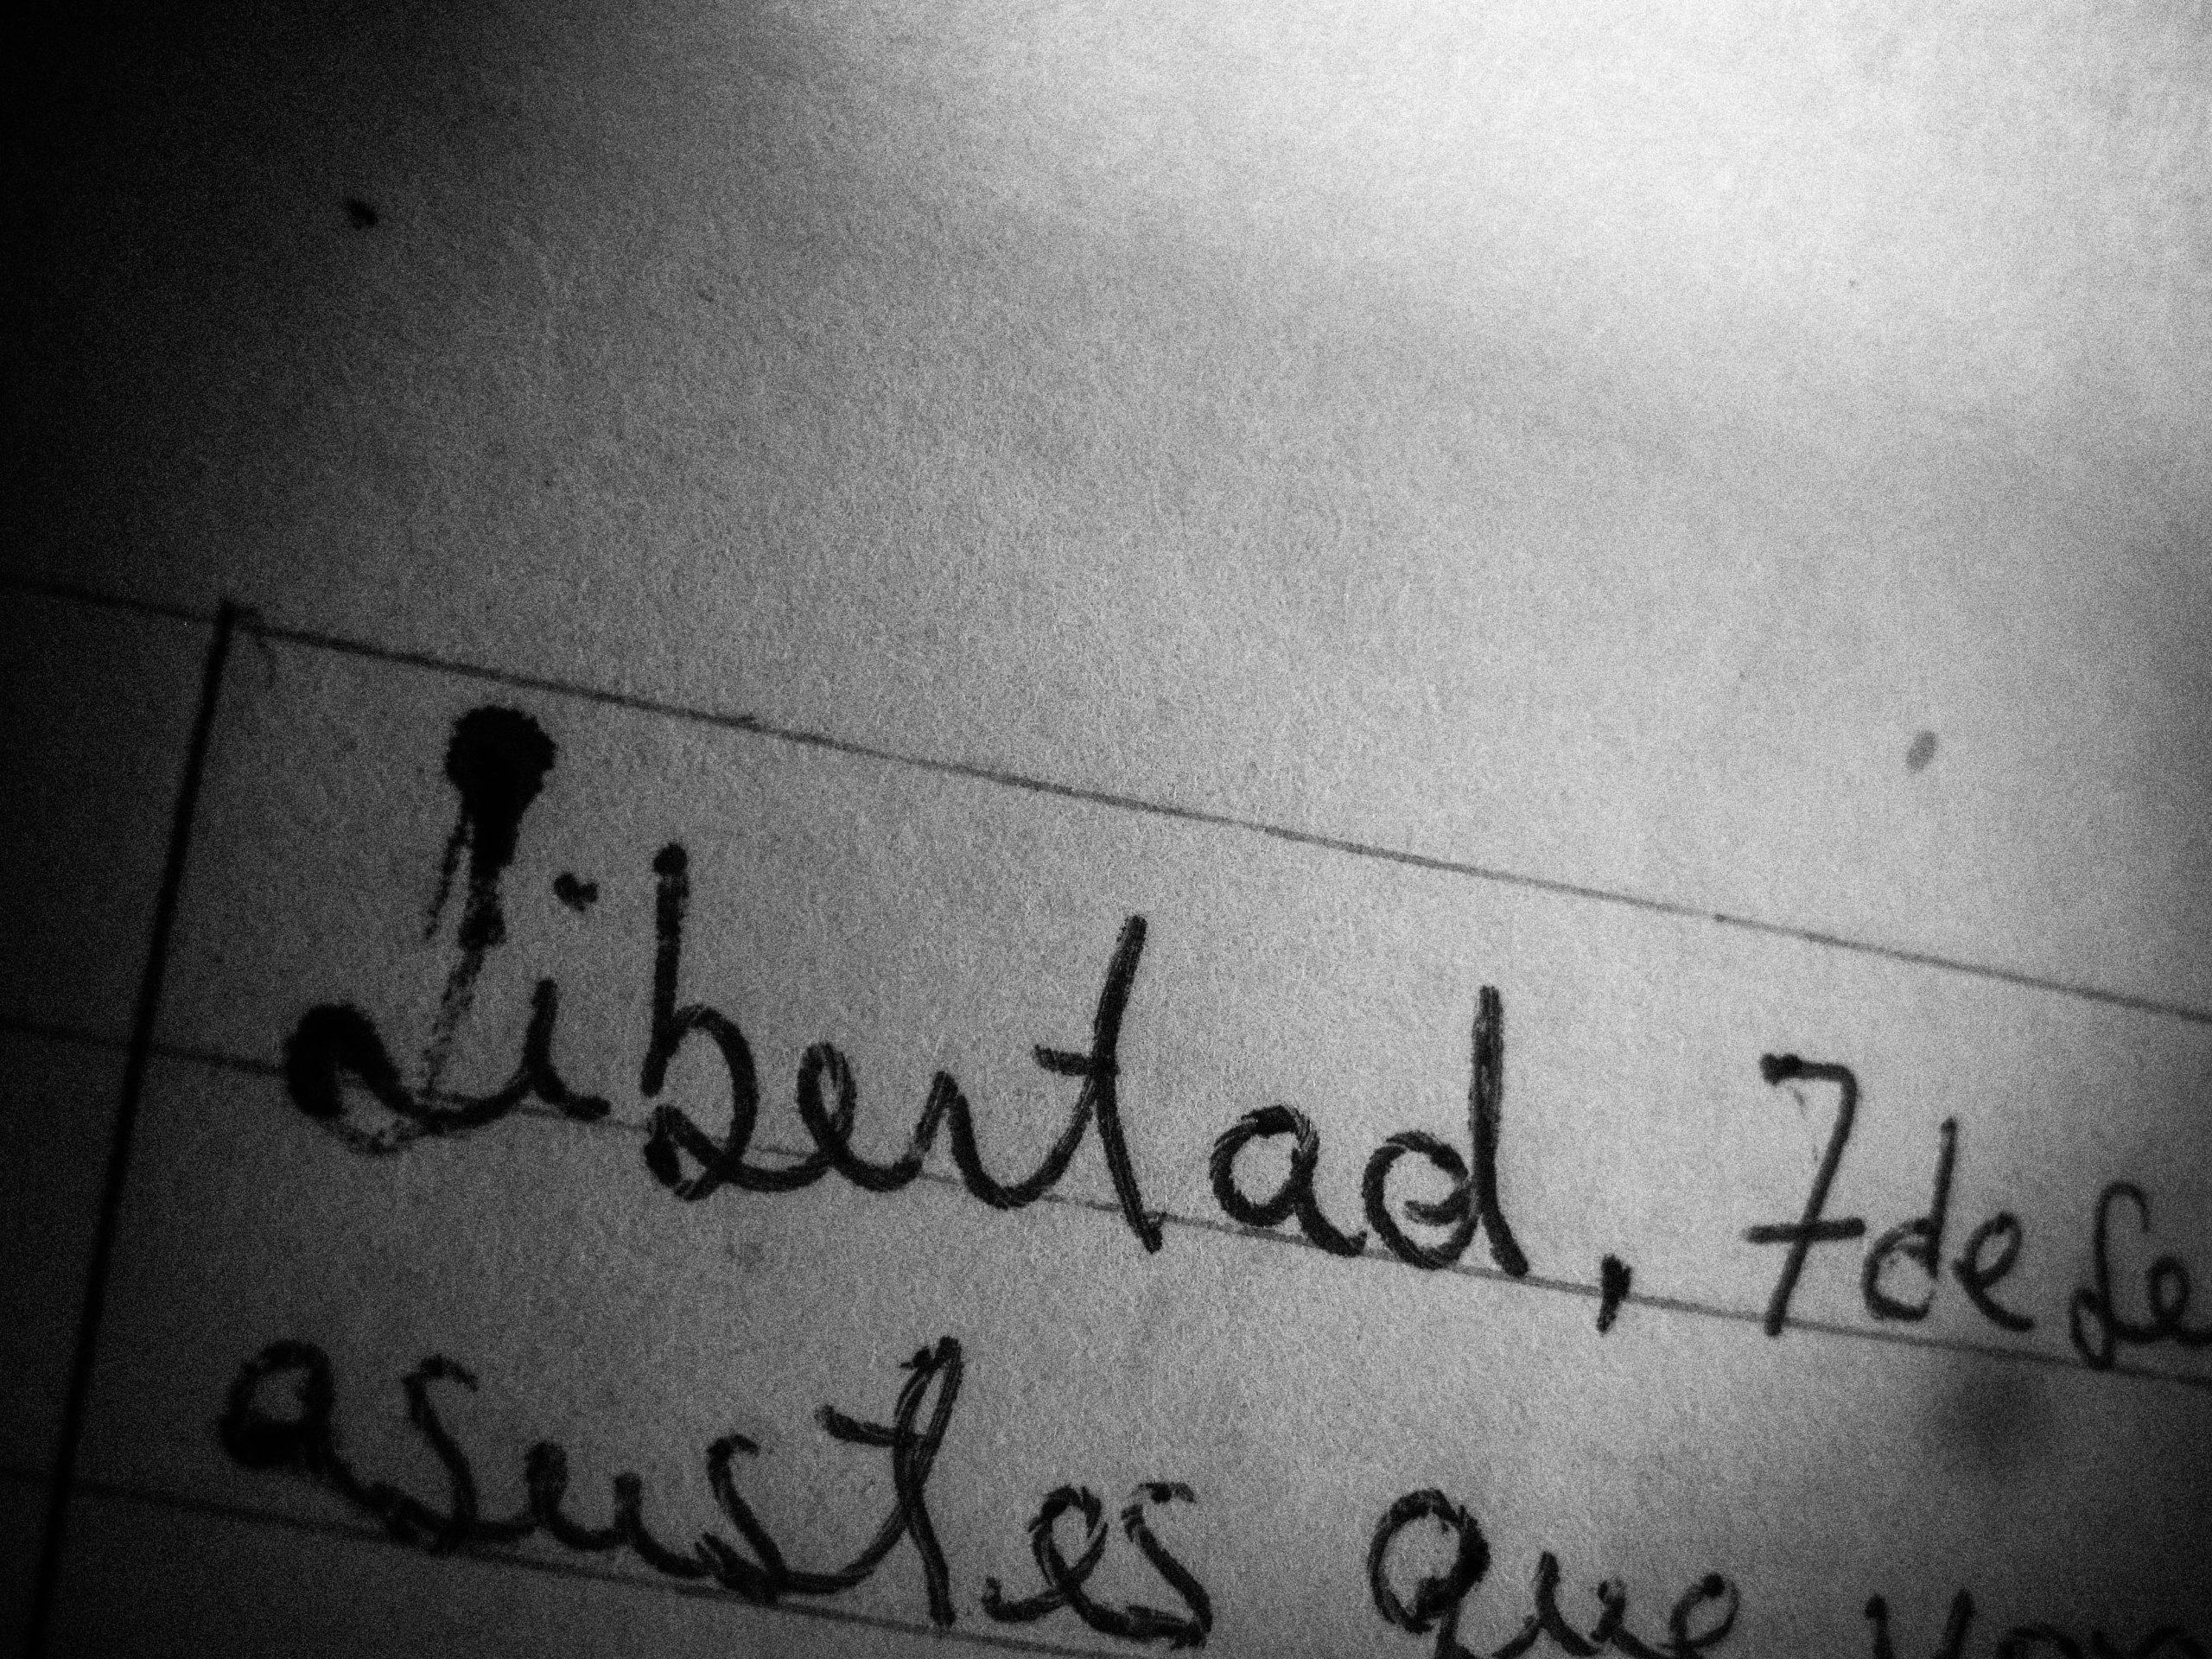 Libertad, 7 de
asustes que